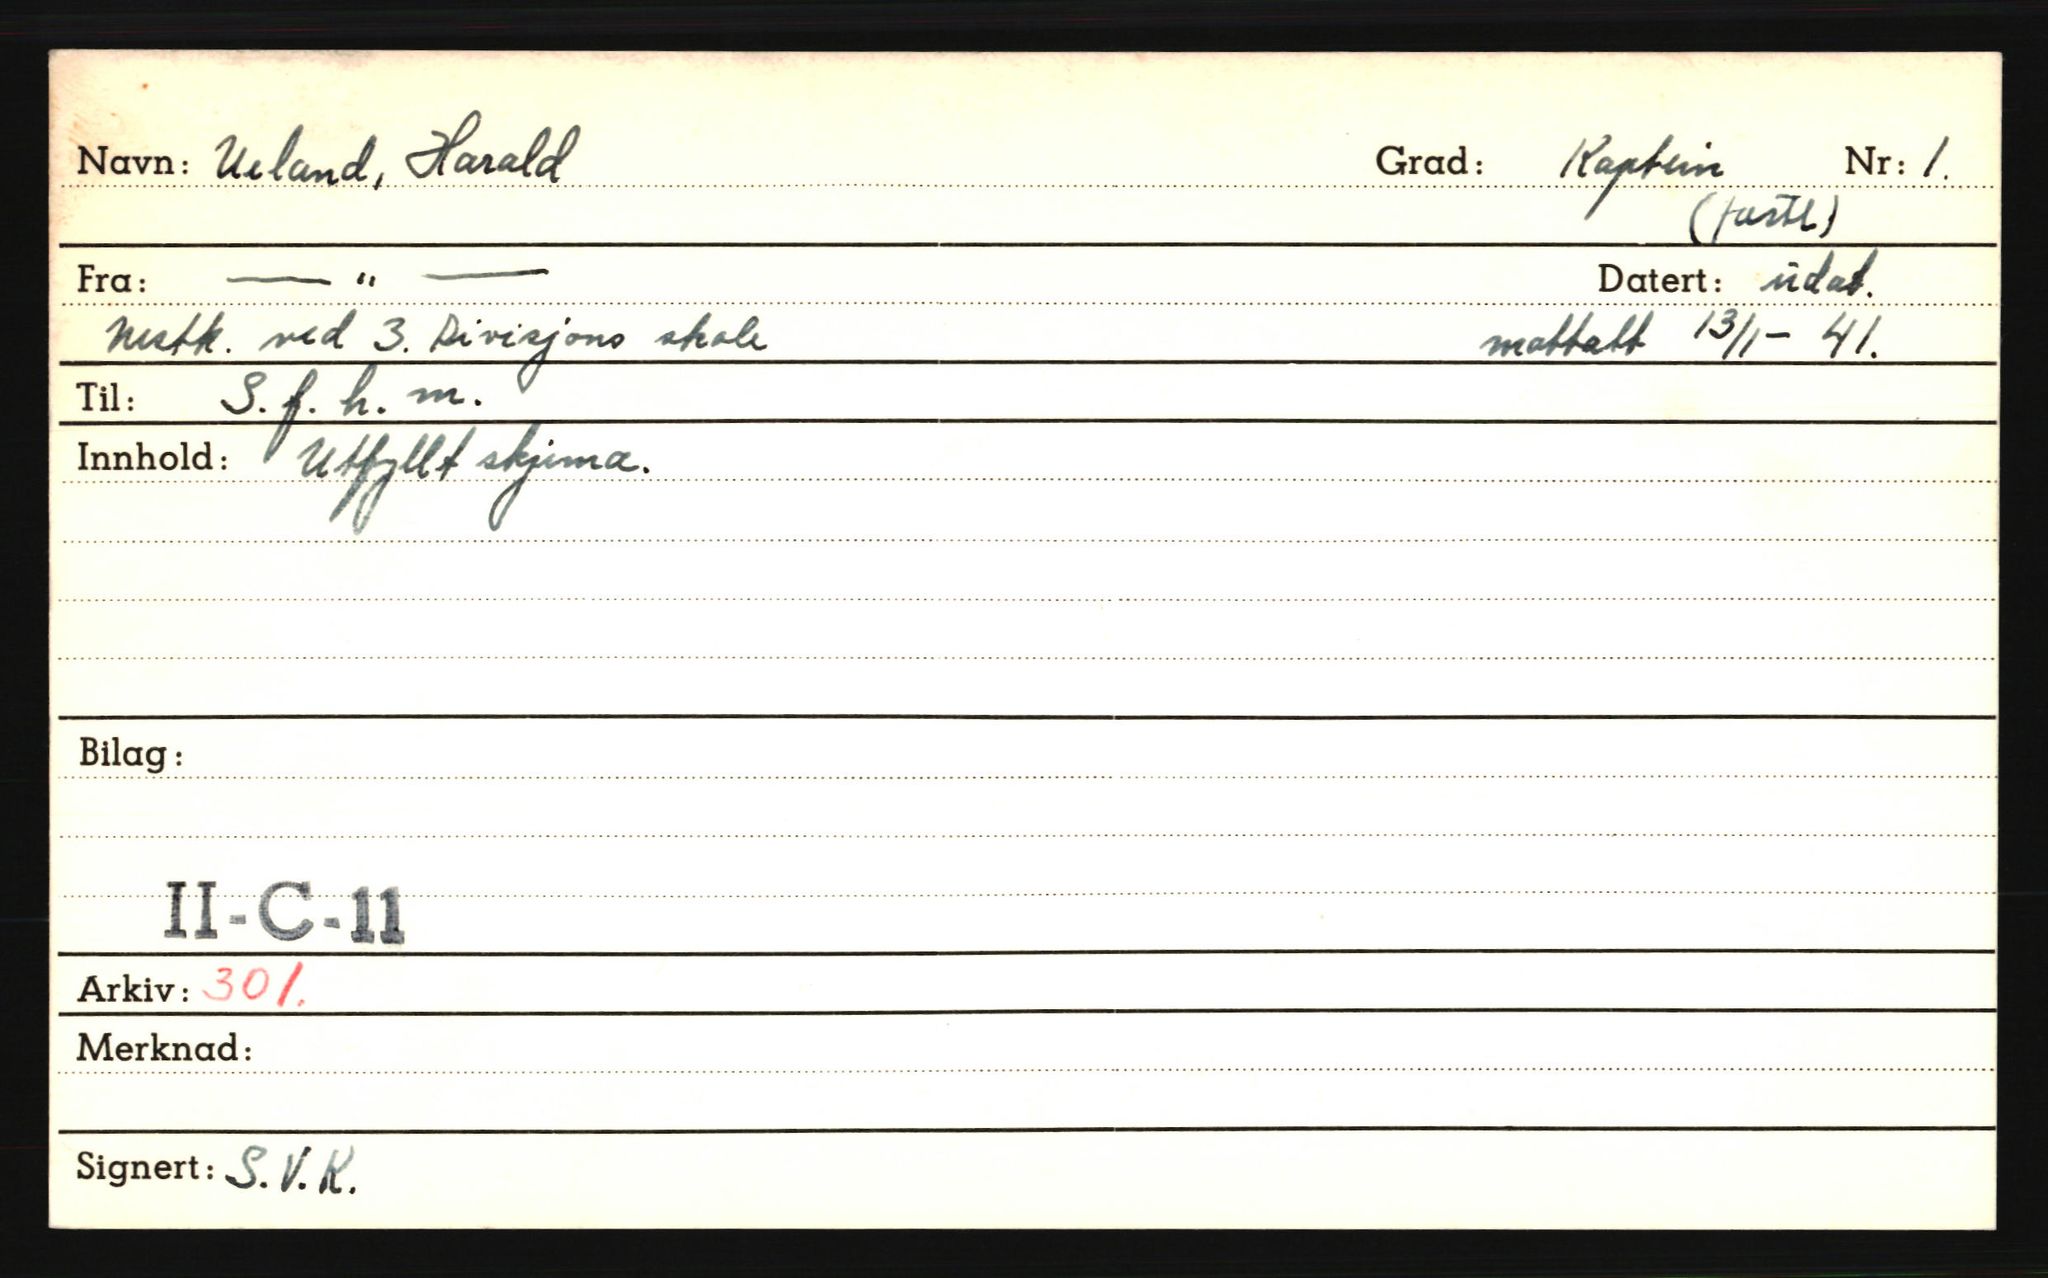 Navn: Ueland, Harald Grad: Kaptein Nr: 1.
Fra: — " — Datert: udat.
Nestk. ved 3. Divisjons skole mottatt 13/1- 41.
Til: S. f. h. m.
Innhold: Utfyllt skjema.
Bilag:
II-C-11
Arkiv: 301.
Merknad:
Signert: S.V.K.